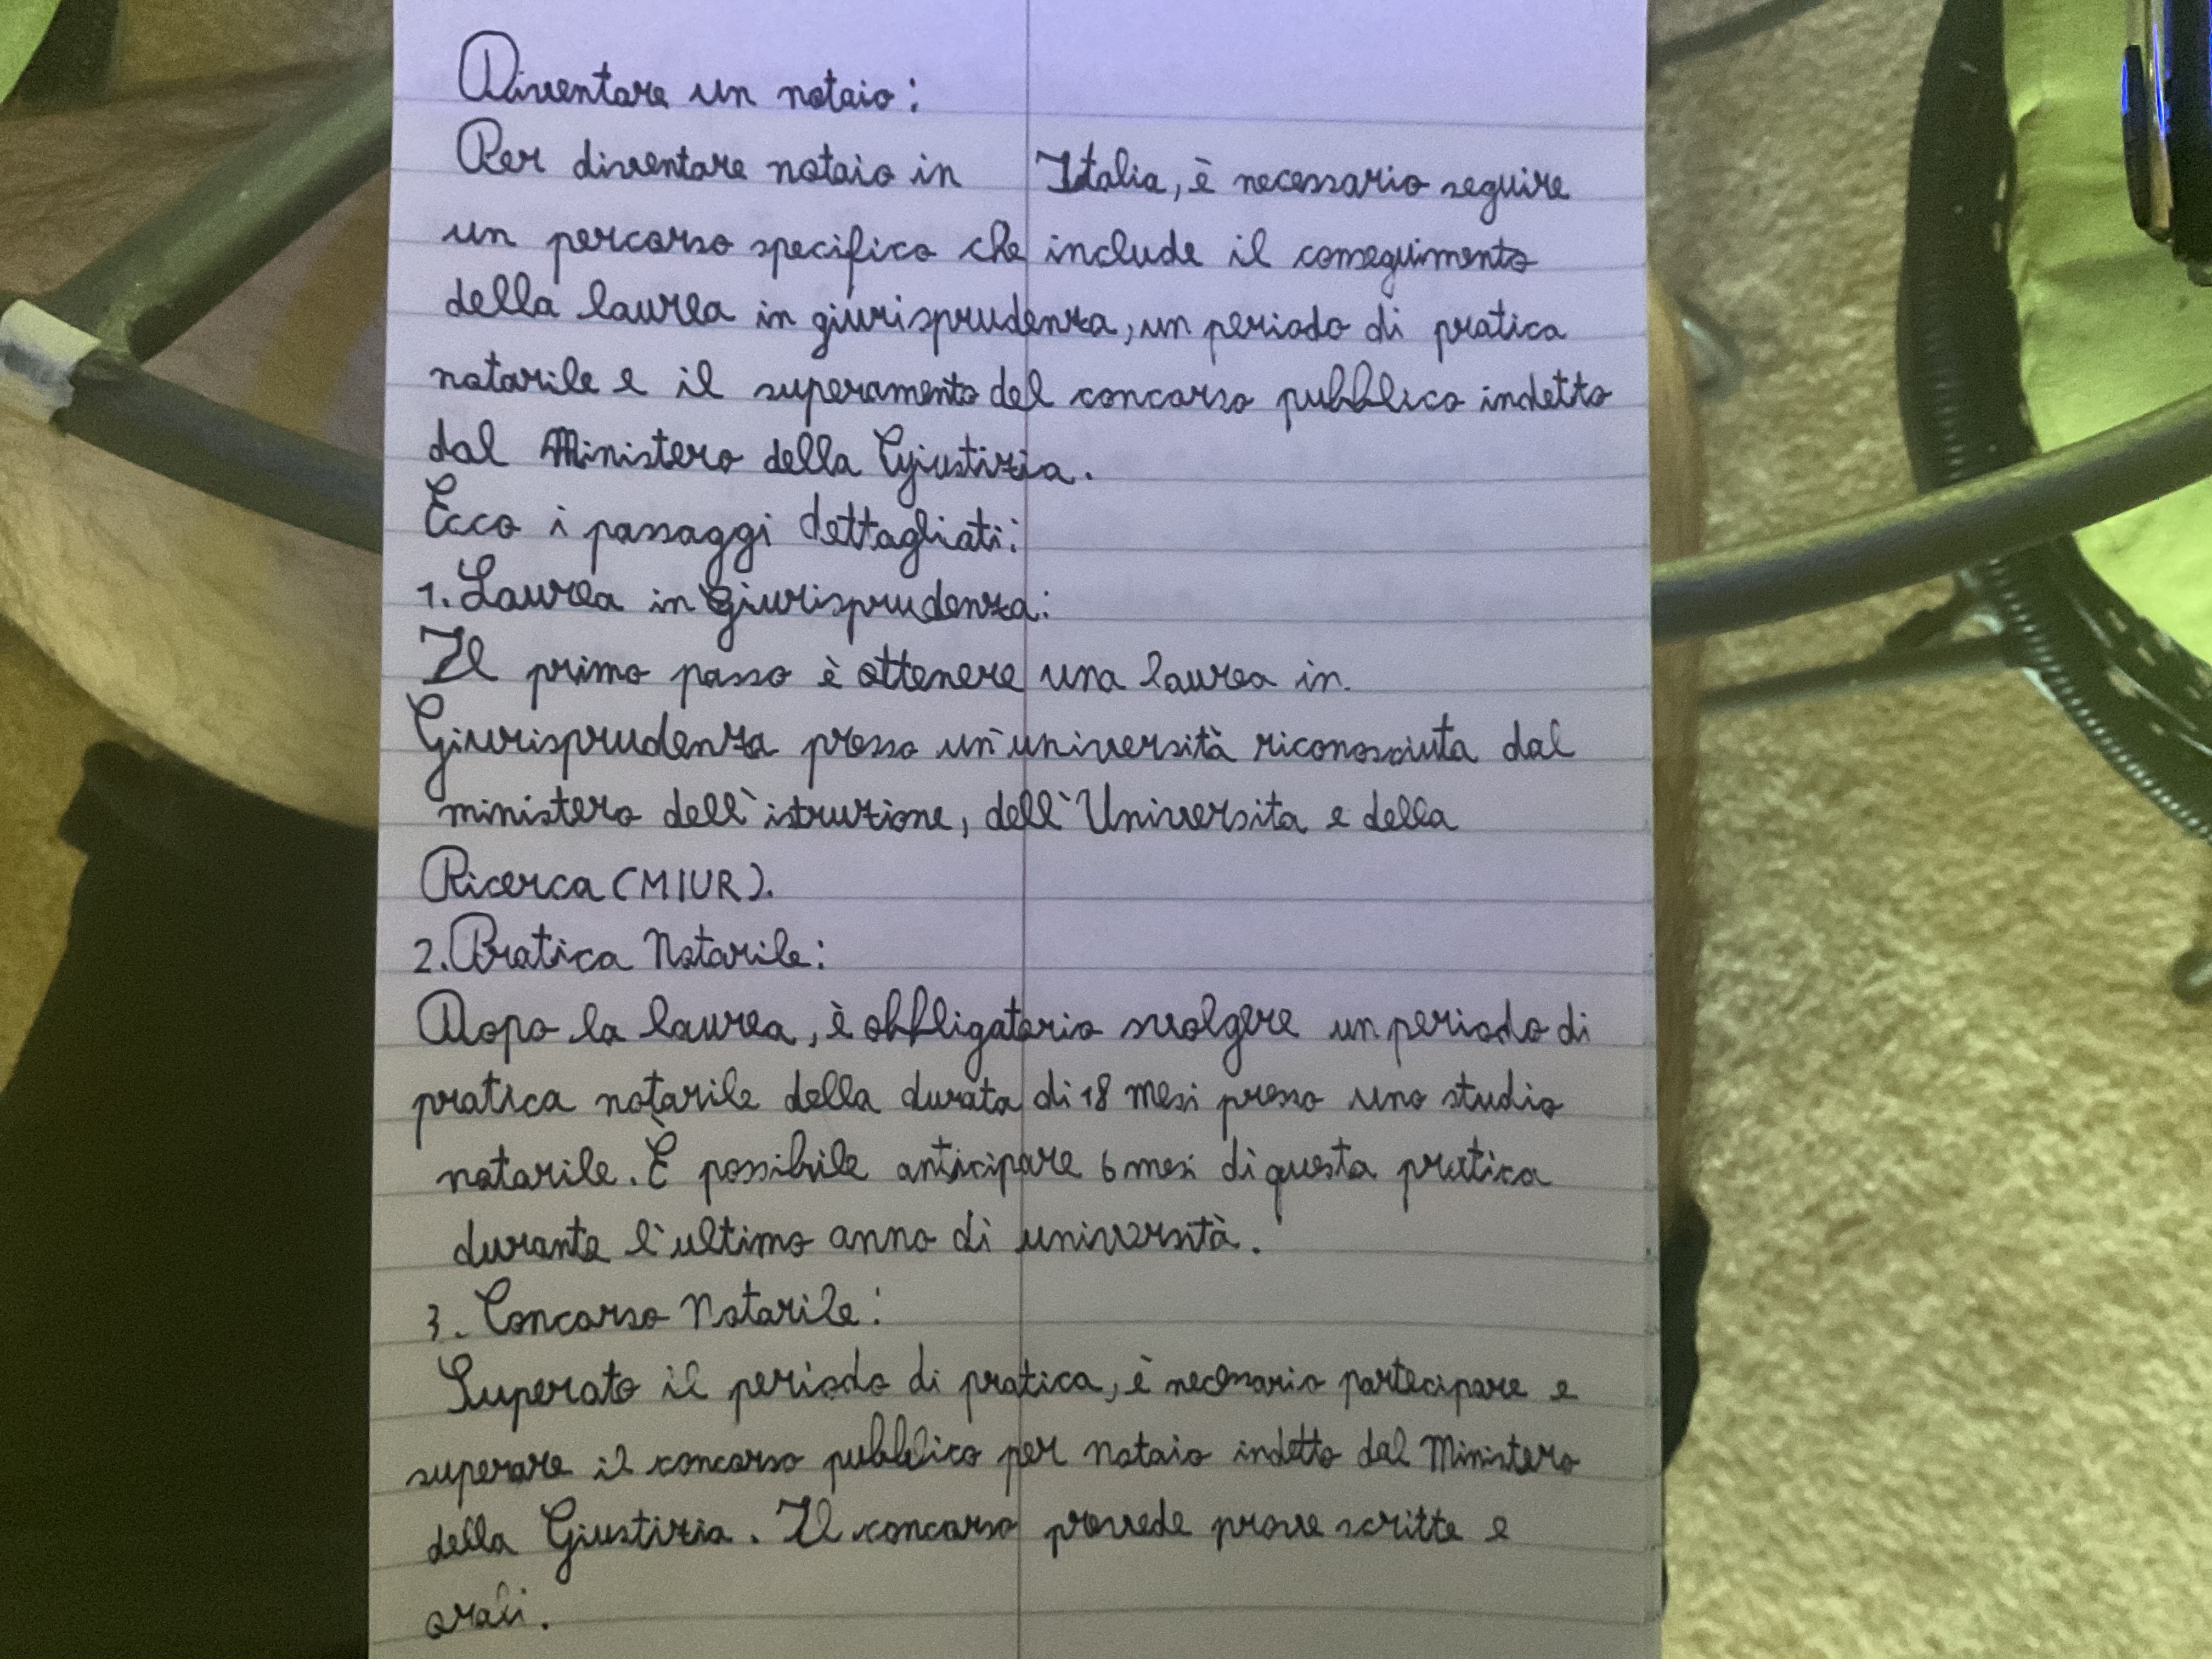 Diventare un notaio:
Per diventare notaio in Italia, è necessario seguire
un percorso specifico che include il conseguimento
della laurea in giurisprudenza, un periodo di pratica
notarile e il superamento del concorso pubblico indetto
dal Ministero della Giustizia.
Ecco i passaggi dettagliati:
1. Laurea in Giurisprudenza:
Il primo passo è ottenere una laurea in
Giurisprudenza presso un'università riconosciuta dal
ministero dell'istruzione, dell'Universita e della
Ricerca (MIUR).
2. Pratica Notarile:
Dopo la laurea, è obbligatorio svolgere un periodo di
pratica notarile della durata di 18 mesi presso uno studio
notarile. È possibile anticipare 6 mesi di questa pratica
durante l'ultimo anno di università.
3. Concorso Notarile:
Superato il periodo di pratica, è necessario partecipare e
superare il concorso pubblico per notaio indetto dal Ministero
della Giustizia. Il concorso prevede prove scritte e
orali.